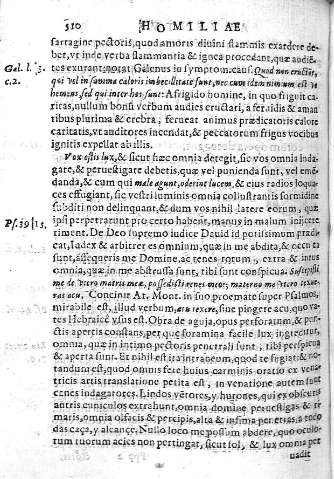 510 HOMILIAE
sartagine pectoris, quod amoris diuini flammis exardere de-
ber, vt inde verba flammantia & ignea procedant, quæ audiē-
Gal. l. 3. tes exurant, notat Galenus in symptom. caus. Quod non cruciat,
c. 2. qui vel in summa caloris imbecillitate sunt, nec eam idem nimium est ve
hemens, sed qui inter hos sunt: A frigido homine, in quo friguit ca
ritas, nullum bonũ verbum audies eructari, a feruidis & aman
tibus plurima & crebra, ferueat animus prædicatoris calore
caritatis, vt auditores incendat, & peccatorum frigus vocibus
ignitis expellat ab illis.
Vox estis lux, & sicut hæc omnia detegit, sic vos omnia inda-
gare, & peruestigare debetis, quæ vel punienda sunt, vel emē-
danda, & cum qui male agunt, oderint lucem, & eius radios loqua
ces effugiant, sic vestri luminis omnia collustrantis formidine
subditi non delinquant, & dum vos nihil latere eorum, quæ
Ps. 39 | 15. ipsi perpetrarunt pro certo habent, manus in malum inijcere
timeant. De Deo supremo iudice Dauid id potissimum prædi
cat, Iudex & arbiter es omnium, quæ in me abdita, & necta
sunt, assequeris me Domine, ac tenes totum, extra & intus
omnia, quæ in me abstrusa sunt, tibi sunt conspicua. Suscepisti
me de vtero matris meæ, possedisti renes meos; materno me vtero texue
ras acu, Concinit Ar. Mont. in suo proemate super Psalmos,
mirabile est, illud verbum, acu texere, siue pingere acu, quo va-
tes Hebraice vsus est. Obra de aguja, opus perforatum, & per-
stis apertis constans, per quæ foramina facile lux ingreditur,
omnia, quæ in intimo pectoris penetrali sunt, tibi perspicua
& aperta sunt. Et nihil est ita intraneum, quod te fugiat: & no-
tandum est, quod omnes fere huius carminis oratio ex vena-
tricis artis translatione petita est, in venatione autem sunt
canes indagatores. Lindos vētores, y hurones, qui ex obscuris
antris cuniculos extrahunt, omnia domine peruestigas & ri
maris, omnia olfacis & percipis, alta & infima per etsas, a todo
das caça, y alcançe. Nullo loco me possum abdere, quo oculo-
rum tuorum acies non pertingat, sicut sol, & lux omnia per
uadit